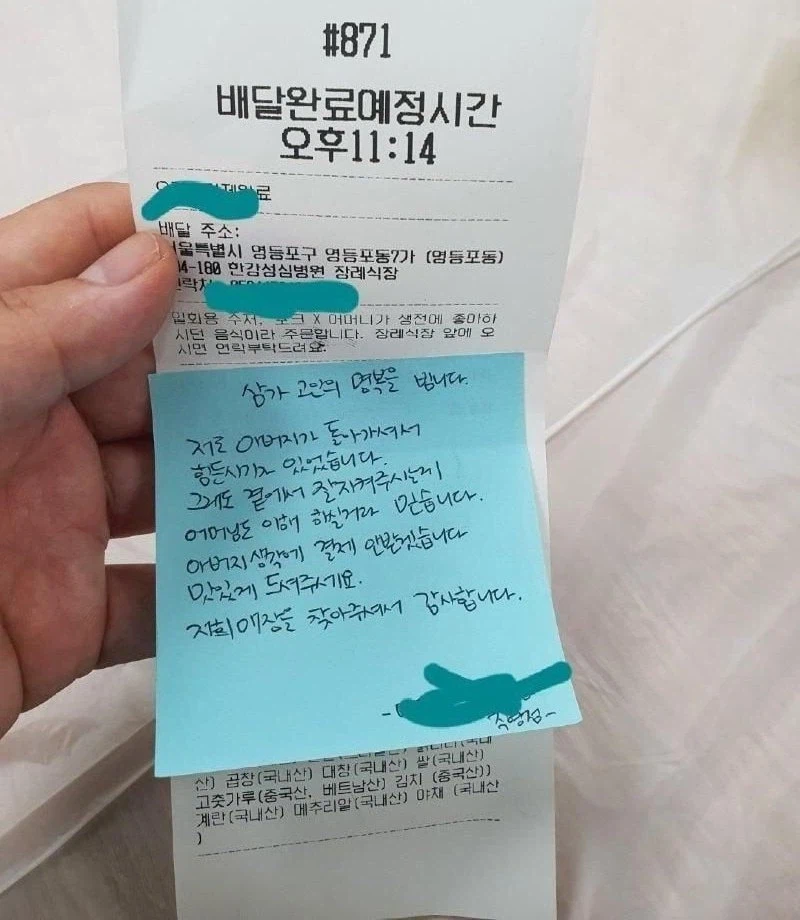 #871
배달완료예정시간
오후11:14
배달 주소:
서울특별시 영등포구 영등포동7가 (영등포동)
94-180 한강성심병원 장례식장
연락처
일회용 수저, 포크 X 어머니가 생전에 좋아하
시던 음식이라 주문합니다. 장례식장 앞에 오
시면 연락부탁드려요.
삼가 고인의 명복을 빕니다.
저도 아버지가 돌아가셔서
힘든시기가 있었습니다.
그래도 곁에서 잘지켜주시는게
어머님도 이해 하실거라 믿습니다.
아버지생각에 결제 안받겠습니다
맛있게 드셔주세요.
저희매장을 찾아주셔서 감사합니다.
직영점-
산) 곱창(국내산) 대창(국내산) 쌀(국내산)
고춧가루(중국산, 베트남산) 김치 (중국산))
계란(국내산) 메추리알(국내산) 야채 (국내산
)